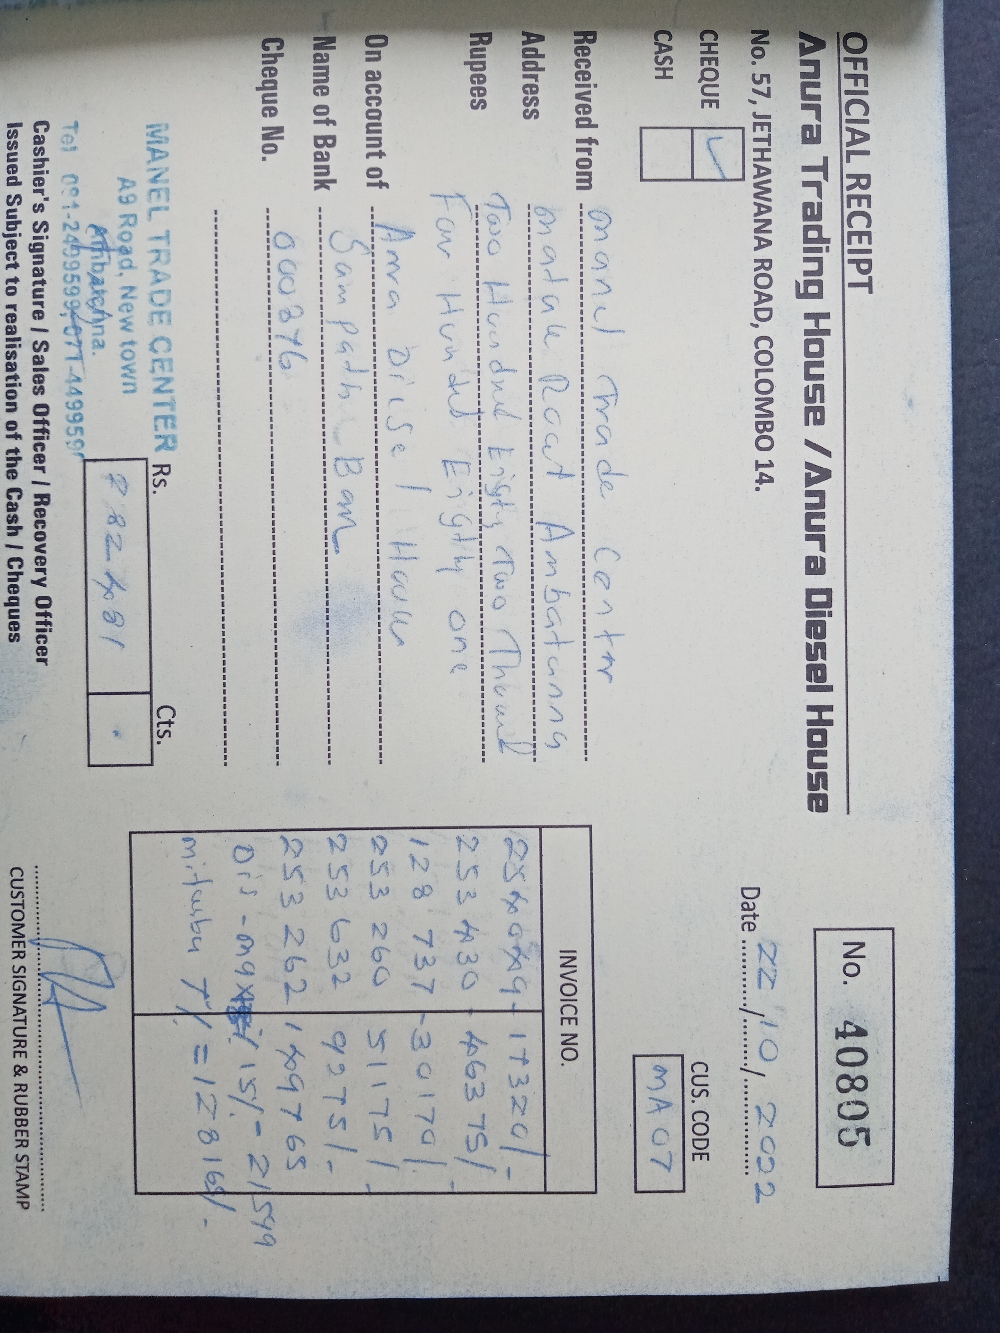 OFFICIAL RECEIPT
Anura Trading House / Anura Diesel House
No. 57, JETHAWANA ROAD, COLOMBO 14.
No. 40805
Date 22/10/2022
CHEQUE ✓
CASH
CUS. CODE
MA07
Received from Manel Trade Center
Address Matale Road Ambatanna
Rupees Two Hundred Eigty Two Thousand
Four Hundred Eigthy one
On account of Anura Diesel House
Name of Bank Sampath Bank
Cheque No. 000876
INVOICE NO.
254049 - 17320/-
253430 - 46375/-
128737 - 30170/-
253260 51175/-
253632 9275/-
253262 149765
Dis - 15/- 21599
7% = 128165/-
MANEL TRADE CENTER
A9 Road, New town
Ambatanna.
Tel 081-2499599/071-449959
Rs. Cts.
282481 -
Cashier's Signature / Sales Officer / Recovery Officer
Issued Subject to realisation of the Cash / Cheques
CUSTOMER SIGNATURE & RUBBER STAMP